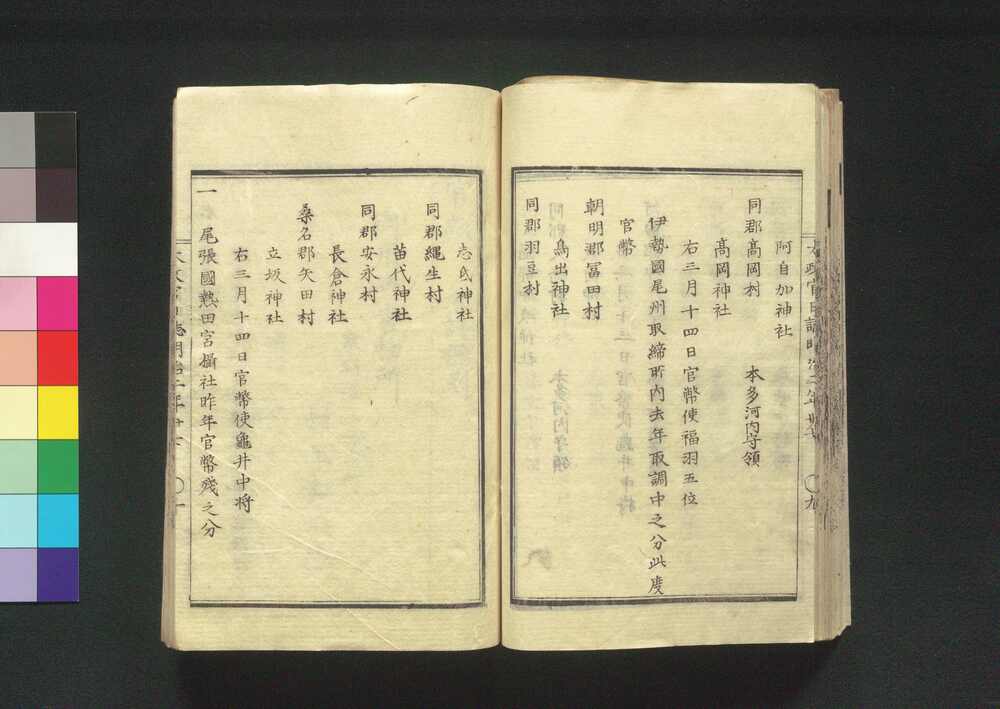 阿自加神社
同郡髙岡村　本多河内守領
髙岡神社
右三月十四日官幣使福羽五位
伊勢國尾州取締所内去年取調中之分此度
官幣
朝明郡冨田村
鳥出神社
同郡羽豆村
志氐神社
同郡縄生村
苗代神社
同郡安永村
長倉神社
桑名郡矢田村
立坂神社
右三月十四日官幣使龜井中將
一　尾張國熱田宮攝社昨年官幣殘之分